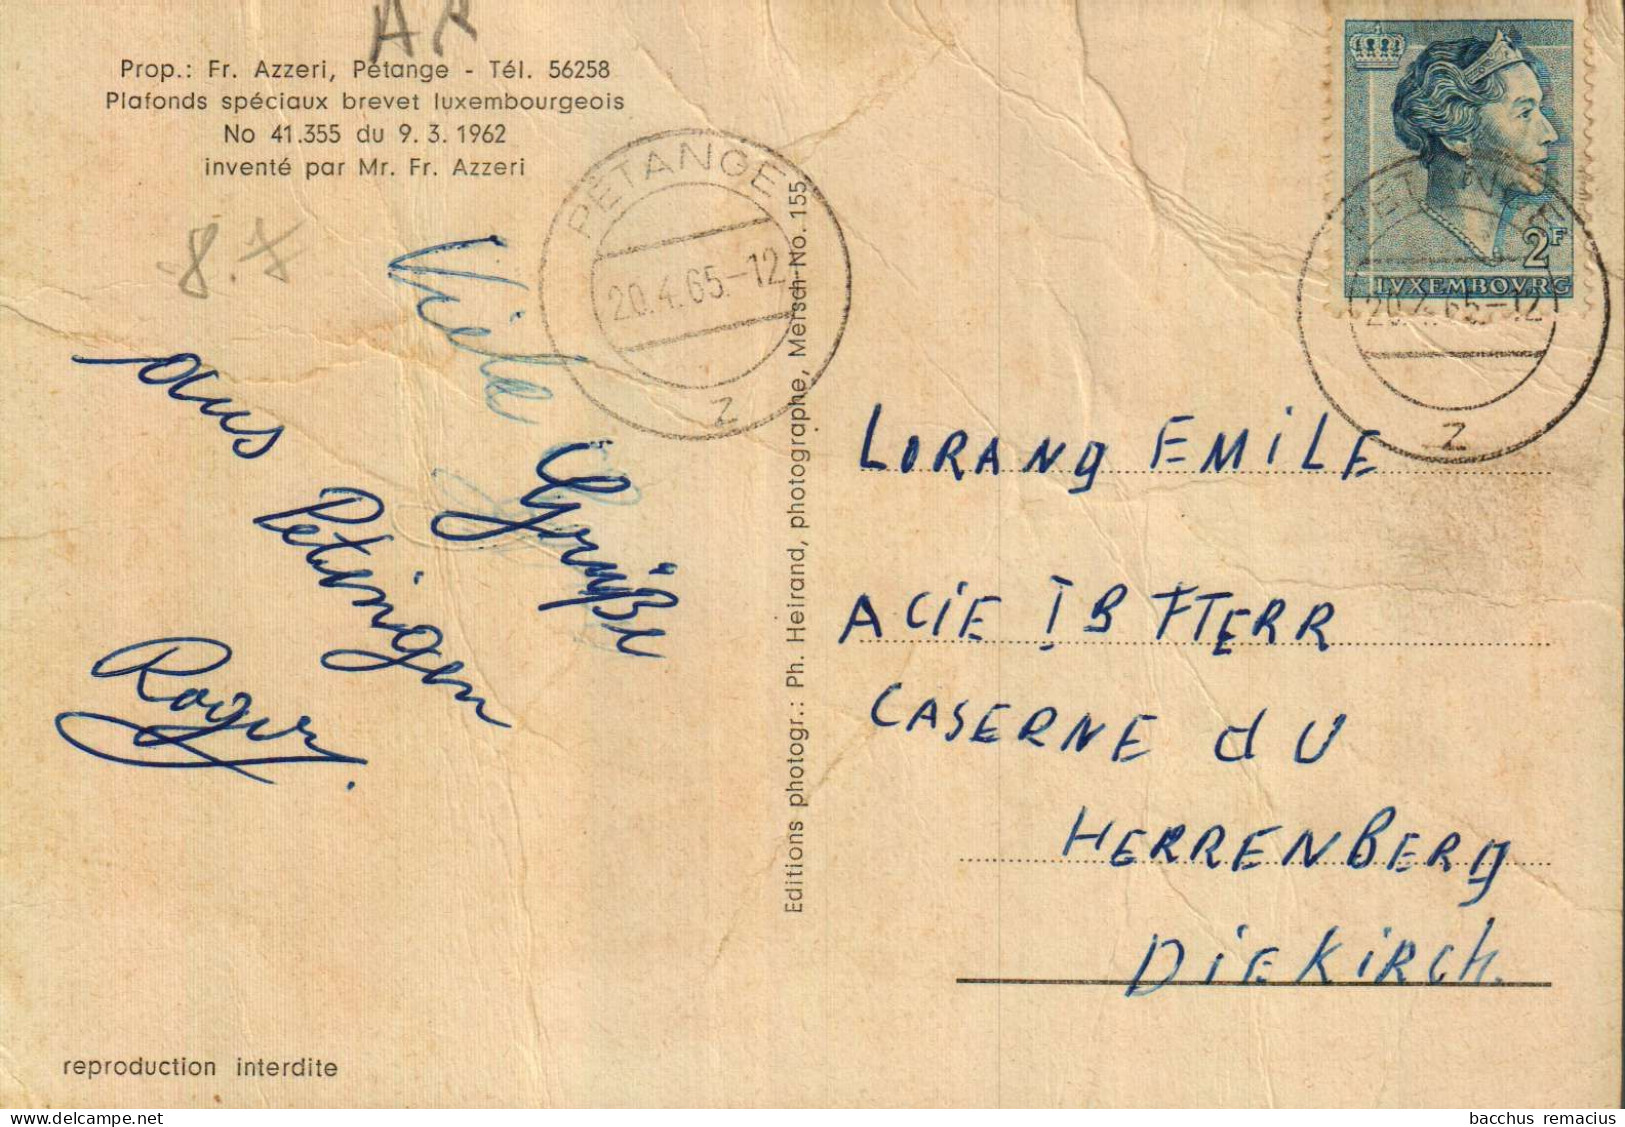 AR
Prop.: Fr. Azzeri, Pétange - Tél. 56258
Plafonds spéciaux brevet luxembourgeois
No 41.355 du 9. 3. 1962
inventé par Mr. Fr. Azzeri
8.7
Viele Grüße
aus Petingen
Roger.
PÉTANGE
20.4.65.-12
z
Editions photogr.: Ph. Heirand, photographe, Mersch-No. 155
2F
LVXEMBOVRG
PÉTANGE
20.4.65.-12
z
LORANG EMILE
ACIE IB TTERR
CASERNE dU
HERRENBERG
DIEKIRCH.
reproduction interdite
bacchus remacius